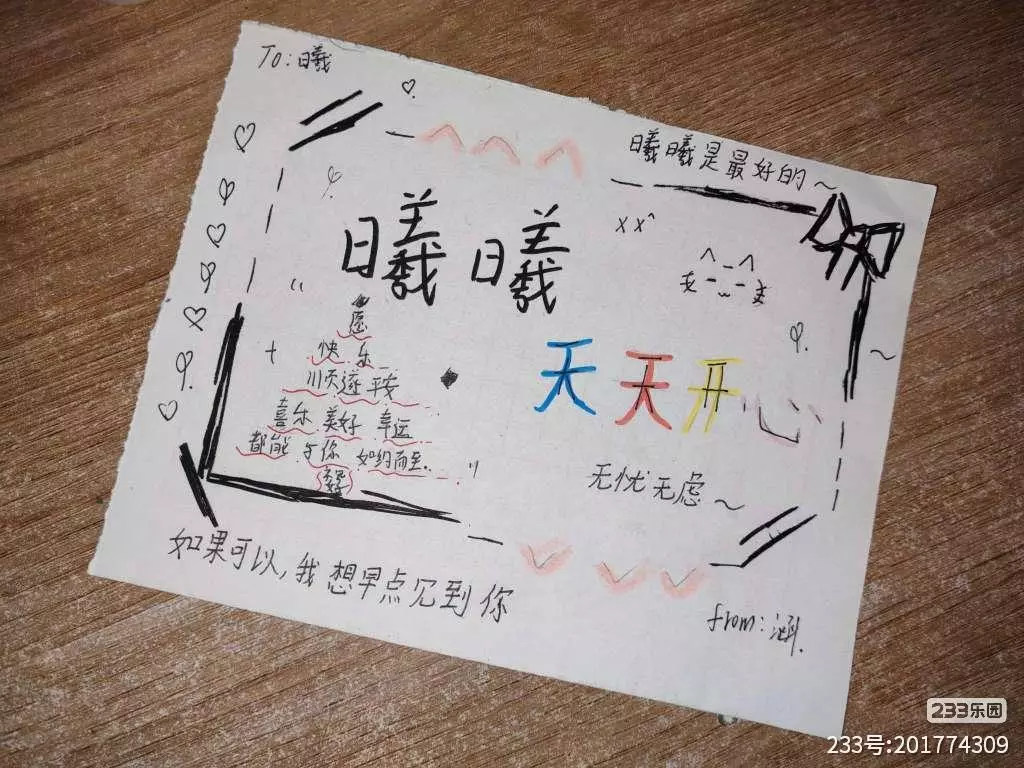 To:曦
曦曦是最好的～
曦曦
xx^
愿
快乐
顺遂 平安
喜乐 美好 幸运
都能 于你 如约而至..
天天开心
无忧无虑～
如果可以,我想早点见到你
from:涵.
233乐园
233号:201774309